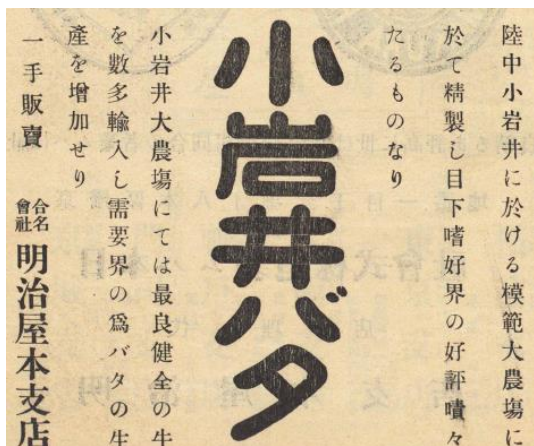 陸中小岩井に於ける模範大農場に
於て精製し目下嗜好界の好評嘖々
たるものなり
小岩井バタ
小岩井大農場にては最良健全の牛
を數多輸入し需要界の爲バタの生
產を增加せり
一手販賣 合名會社 明治屋本支店